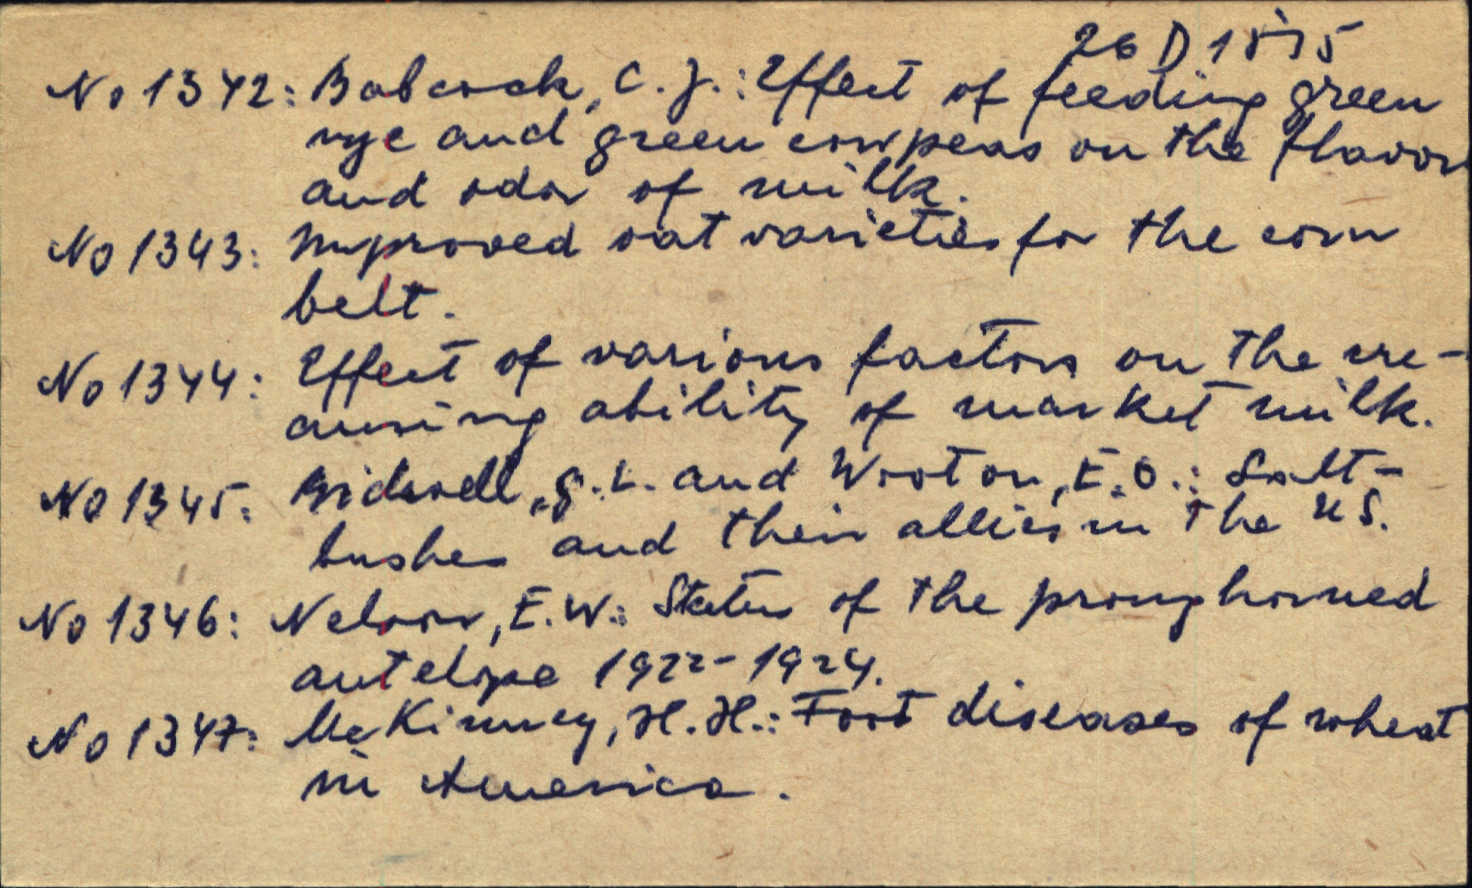 26 D 1875
No 1342: Babcock, C. J.: Effect of feeding green
rye and green cowpeas on the flavor
and odor of milk.
No 1343: Improved oat varieties for the corn
belt.
No 1344: Effect of various factors on the cre-
aming ability of market milk.
No 1345: Bidwell, G. L. and Wooton, E. O.: Salt-
bushes and their allies in the U.S.
No 1346: Nelson, E. W.: Status of the pronghorned
antelope 1922-1924.
No 1347: McKinney, H. H.: Foot diseases of wheat
in America.